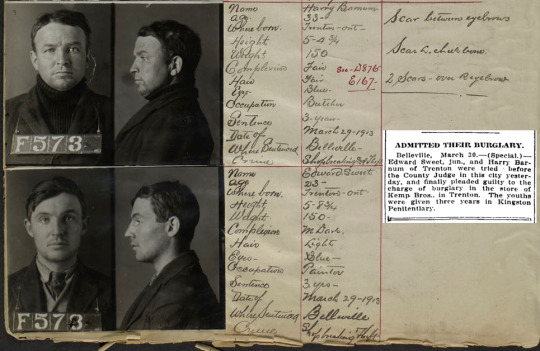 Name Harry Barnum
age 33-
Where born. Trenton-ont-
Height 5-4¾
Weight 150
Complexion Fair
Hair Fair
Eyes Blue-
Occupation Butcher
Sentence 3-years-
Date of March 29-1913
Where Sentenced Belleville-
Crime Shopbreaking &
See-D876
E167-
Scar between eyebrows
Scar L. cheek bone.
2 Scars-over R eyebrow
F573
ADMITTED THEIR BURGLARY.
Belleville, March 30.—(Special.)—
Edward Sweet, jun., and Harry Bar-
num of Trenton were tried before
the County Judge in this city yester-
day, and finally pleaded guilty to the
charge of burglary in the store of
Kemp Bros., in Trenton. The youths
were given three years in Kingston
Penitentiary.
Name Edward Sweet
age 23-
Where born. Trenton-ont
Height 5-8¾
Weight 150-
Complexion M Dark.
Hair Light
Eyes- Blue-
Occupation Painter
Sentence 3 yrs-
Date of March 29-1913
Where Sentenced Belleville
Crime Shopbreaking Theft
F573